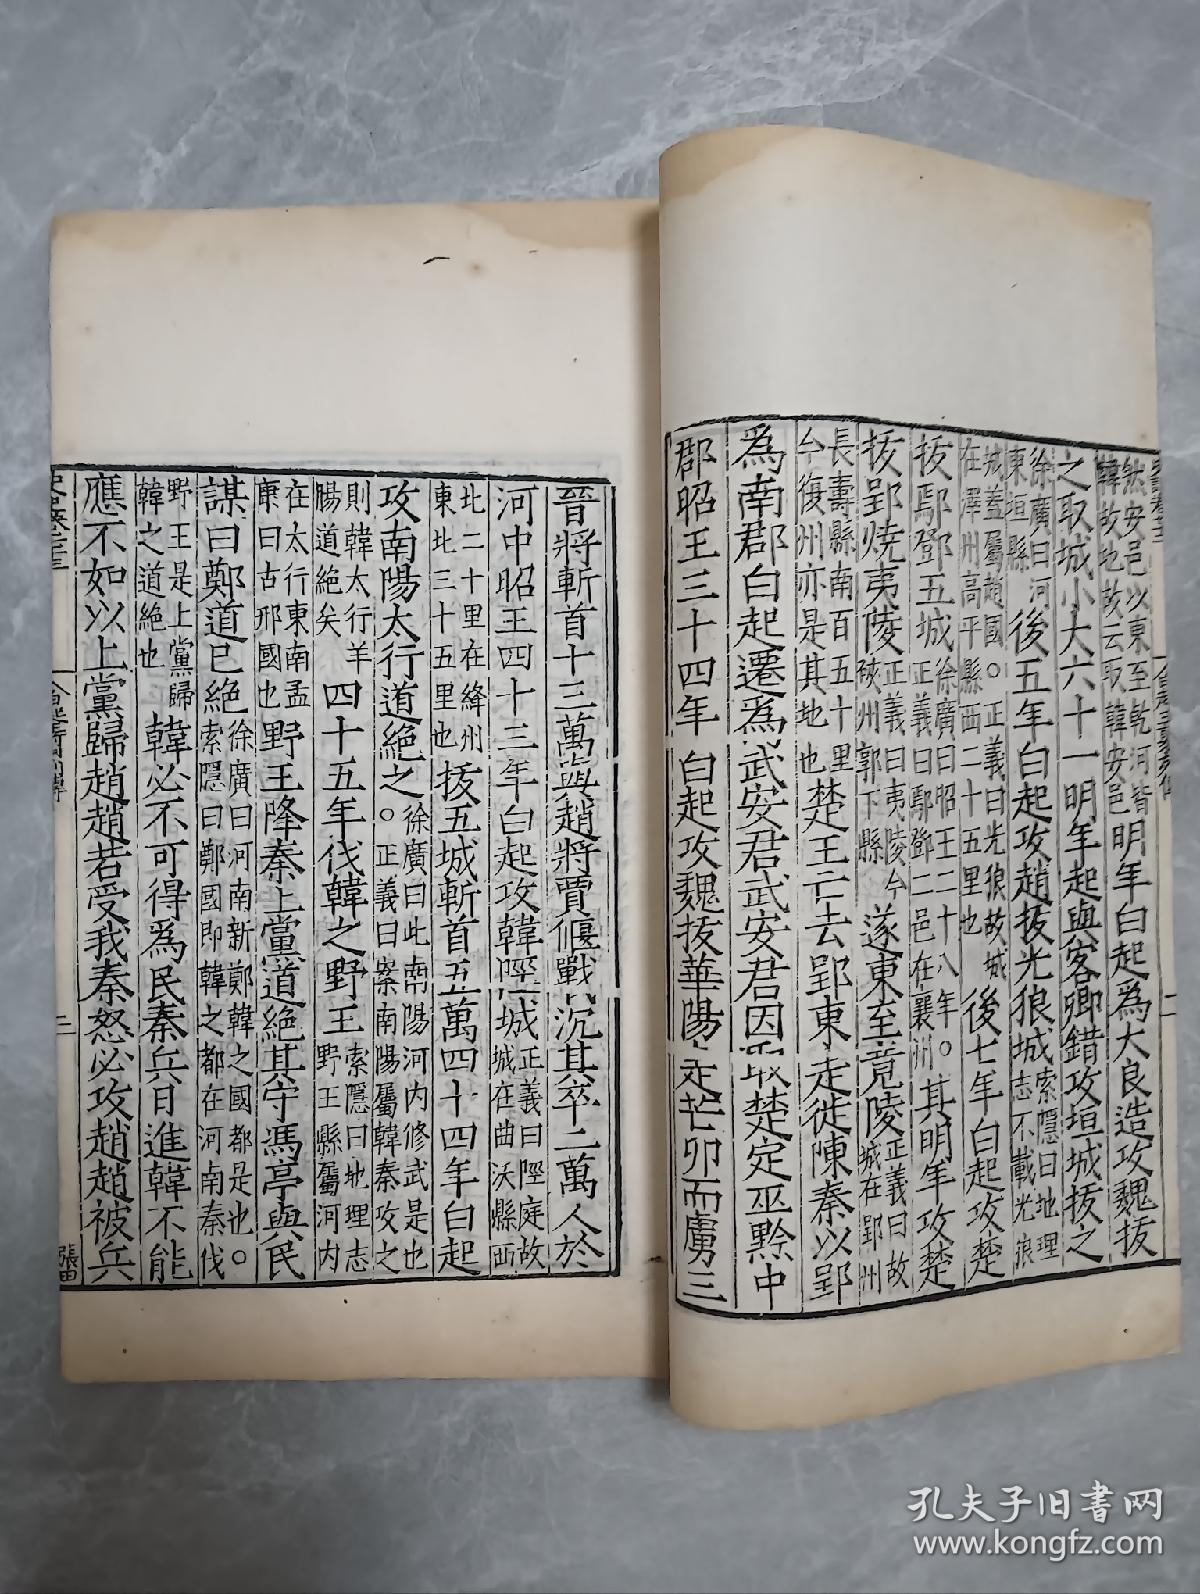 然安邑以東至乾河皆
韓故地故云取韓安邑
明年白起爲大良造攻魏拔
之取城小大六十一明年起與客卿錯攻垣城拔之
徐廣曰河
東垣縣
後五年白起攻趙拔光狼城
索隱曰地理
志不載光狼
城蓋屬趙國。正義曰光狼故城
在澤州高平縣西二十五里也
後七年白起攻楚
拔鄢鄧五城
徐廣曰昭王二十八年。
正義曰鄢鄧二邑在襄州
其明年攻楚
拔郢燒夷陵
正義曰夷陵今
硤州郭下縣
遂東至竟陵
正義曰故
城在郢州
長壽縣南百五十里
今復州亦是其地也
楚王亡去郢東走徙陳秦以郢
爲南郡白起遷爲武安君武安君因取楚定巫黔中
郡昭王三十四年白起攻魏拔華陽走芒卯而虜三
晉將斬首十三萬與趙將賈偃戰沉其卒二萬人於
河中昭王四十三年白起攻韓陘城
正義曰陘庭故
城在曲沃縣西
北二十里在絳州
東北三十五里也
拔五城斬首五萬四十四年白起
攻南陽太行道絕之。
徐廣曰此南陽河內修武是也
正義曰案南陽屬韓秦攻之
則韓太行羊
腸道絕矣
四十五年伐韓之野王
索隱曰地理志
野王縣屬河內
在太行東南孟
康曰古邢國也
野王降秦上黨道絕其守馮亭與民
謀曰鄭道已絕
徐廣曰河南新鄭韓之國都是也。
索隱曰鄭國即韓之都在河南秦伐
野王是上黨歸
韓之道絕也
韓必不可得爲民秦兵日進韓不能
應不如以上黨歸趙趙若受我秦怒必攻趙趙被兵
三
張田
孔夫子旧书网
www.kongfz.com